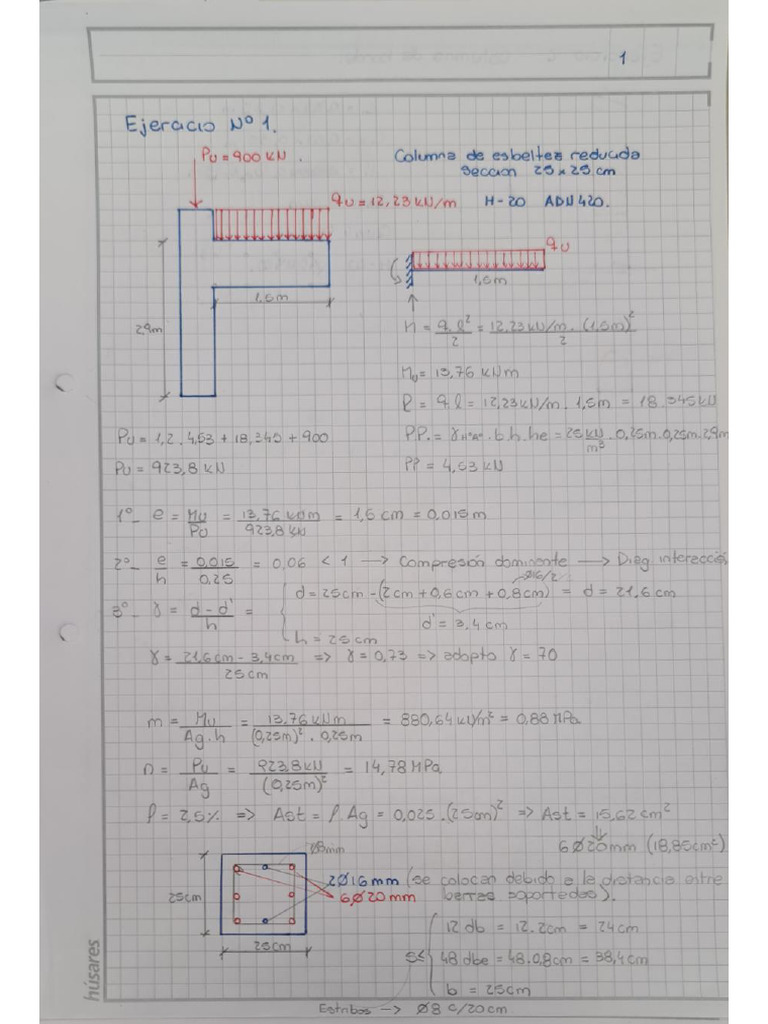 1
Ejercicio Nº 1.
Pu = 900 KN.
Columna de esbeltez reducida
seccion 25 x 25 cm
qu = 12,23 KN/m H-20 ADN 420.
qu
1,5m
1,5m
2,9m
M = q.l²/2 = 12,23 KN/m . (1,5m)²/2
Mu = 13,76 KNm
P = q.l = 12,23 KN/m . 1,5m = 18.345 KN
Pu = 1,2 . 4,53 + 18,345 + 900
PP. = γHºAº . b.h.he = 25 KN/m³ . 0,25m.0,25m.2,9m
Pu = 923,8 KN
PP = 4,53 KN
1º_ e = Mu/Pu = 13,76 KNm/923,8 KN = 1,5 cm = 0,015m
2º_ e/h = 0,015/0,25 = 0,06 < 1 → Compresión dominante → Diag interacción
Ø16/2
3º_ γ = d - d'/h = { d = 25cm - (2cm + 0,6cm + 0,8cm) = d = 21,6 cm
d' = 3,4 cm
h = 25cm
γ = 21,6cm - 3,4cm/25cm => γ = 0,73 => adopto γ = 70
m = Mu/Ag.h = 13.76 KNm/(0,25m)² . 0,25m = 880,64 KN/m² = 0,88 MPa
n = Pu/Ag = 923,8 KN/(0,25m)² = 14,78 MPa
ρ = 2,5% => Ast = ρ.Ag = 0,025 . (25cm)² => Ast = 15,62 cm²
6Ø20mm (18,85cm²)
Ø8mm
2Ø16mm (se colocan debido a la distancia entre
barras soportadas).
6Ø20mm
25cm
25cm
12 db = 12.2cm = 24cm
S≤ { 48 dbe = 48.0,8cm = 38,4cm
b = 25cm
Estribos → Ø8 c/20cm
húsares